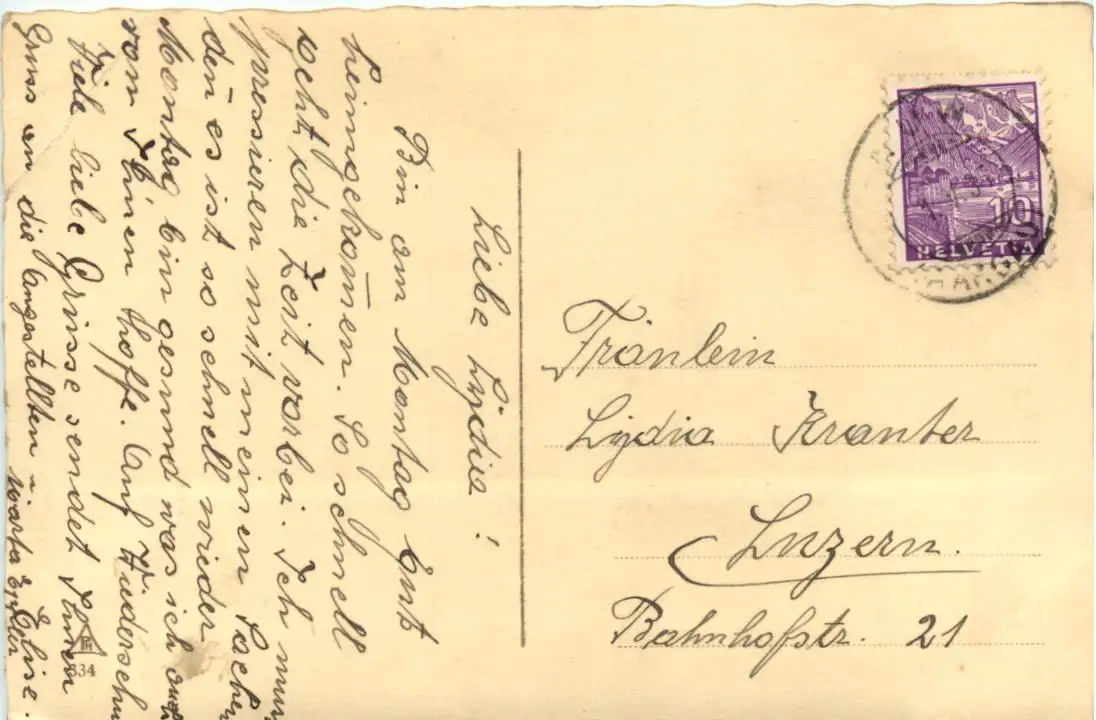 Liebe Lydia!
Bin am Montag gut
heimgekom̄en. So schnell
geht die Zeit vorbei. Ich mus
pressieren mit meinen Sachen
den̄ es ist so schnell wieder
Montag bin gesund was ich auch
von Ihnen hoffe. Auf Wiedersehn
Viele liebe Grüsse sendet Ihnen
Elise.
Gruss an die Angestellten
Marta
Fräulein
Lydia Kranter
Luzern.
Bahnhofstr. 21
10
HELVETIA
AARGAU
334